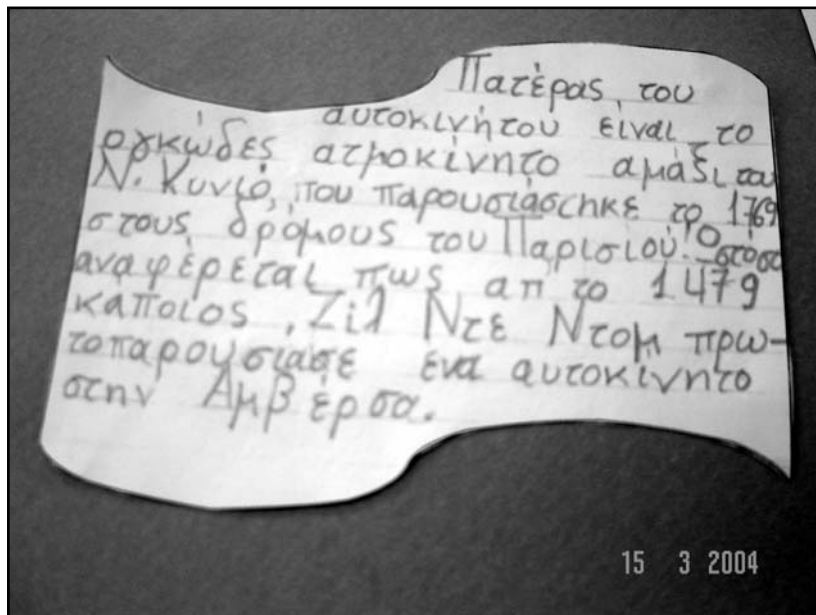 Πατέρας του
αυτοκινήτου είναι το
ογκώδες ατμοκίνητο αμάξι του
Ν. Κυνιό, που παρουσιάσθηκε το 1769
στους δρόμους του Παρισιού. Ωστόσο
αναφέρεται πως απ το 1479
κάποιος, Ζιλ Ντε Ντομ πρω-
τοπαρουσίασε ένα αυτοκίνητο
στην Αμβέρσα.
15 3 2004